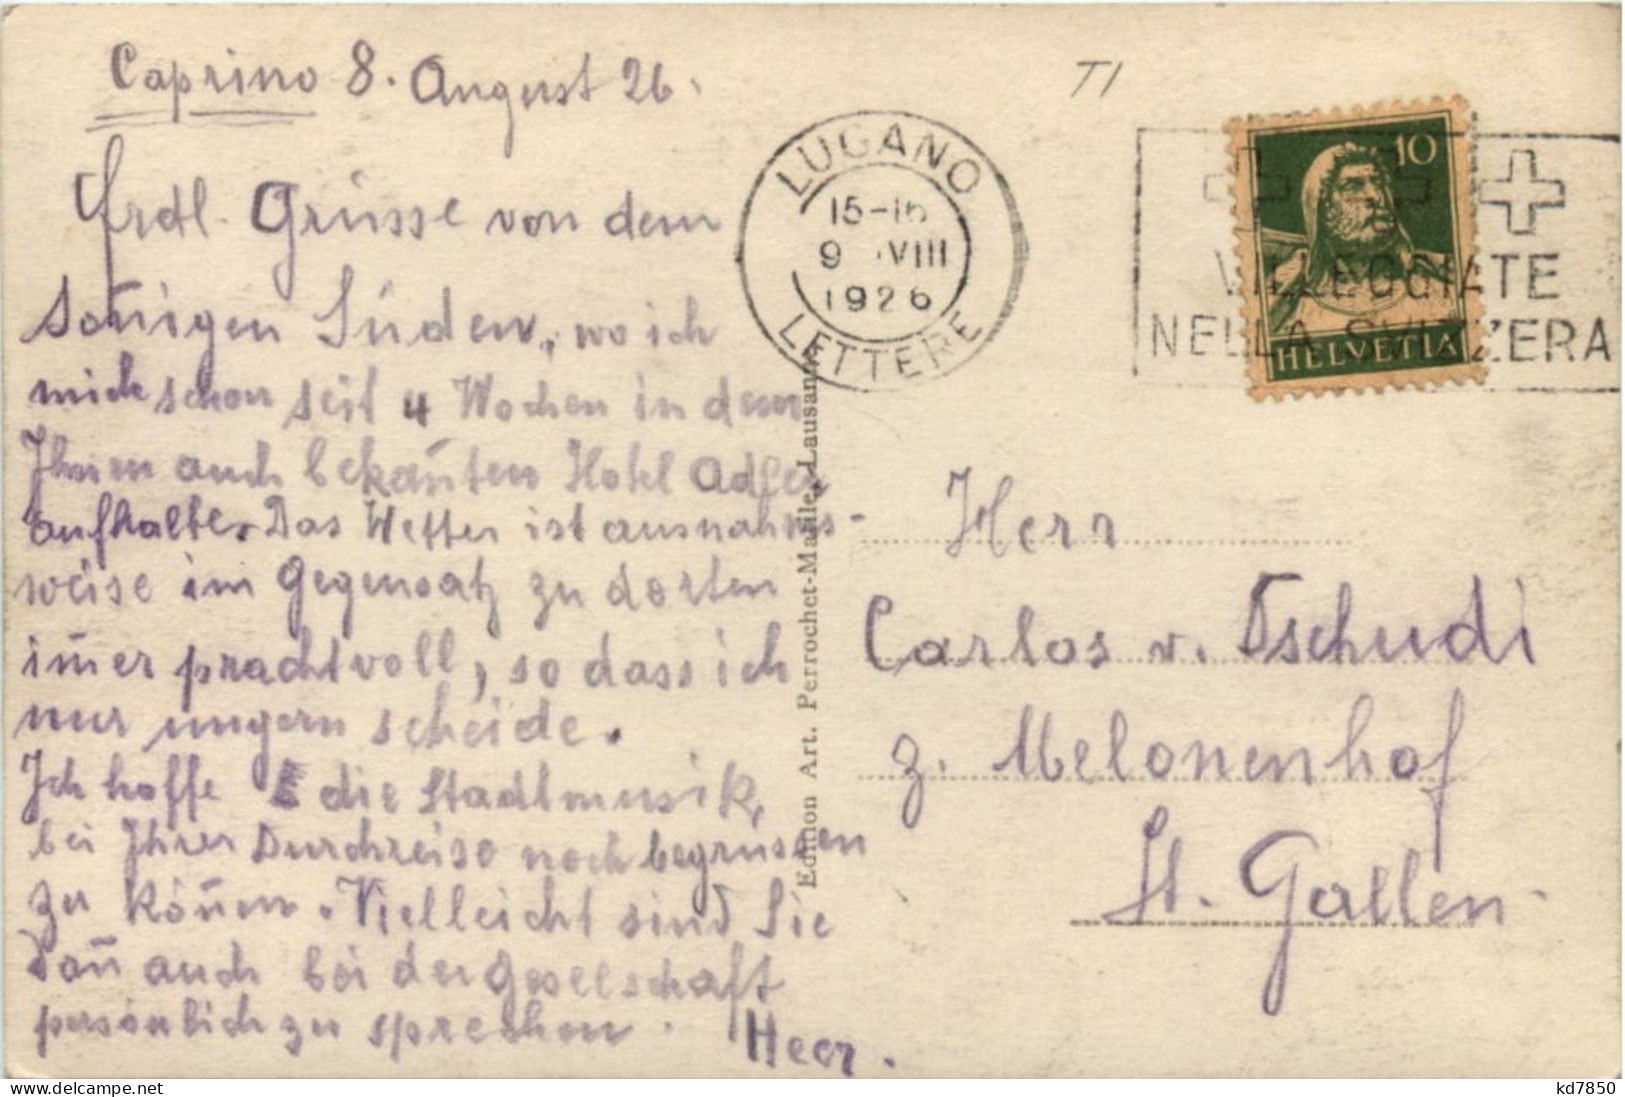 Caprino 8. August 26.
Frdl. Grüsse von dem
soñigen Süden, wo ich
mich schon seit 4 Wochen in dem
Ihnen auch bekañten Hotel Adler
aufhalte. Das Wetter ist ausnahms-
weise im Gegensatz zu dorten
im̃er prachtvoll, so dass ich
nur ungern scheide.
Ich hoffe die Stadtmusik,
bei Ihrer Durchreise noch begrüssen
zu köñen. Vielleicht sind Sie
dañ auch bei der Gesellschaft
persönlich zu sprechen.
Heer.
TI
LUGANO
15-16
9 VIII
1926
LETTERE
VILLEGGIATE
NELLA SVIZZERA
10
HELVETIA
Edition Art. Perrochet-Matile, Lausanne
Herr
Carlos v. Tschudi
z. Melonenhof
St. Gallen
kd7850